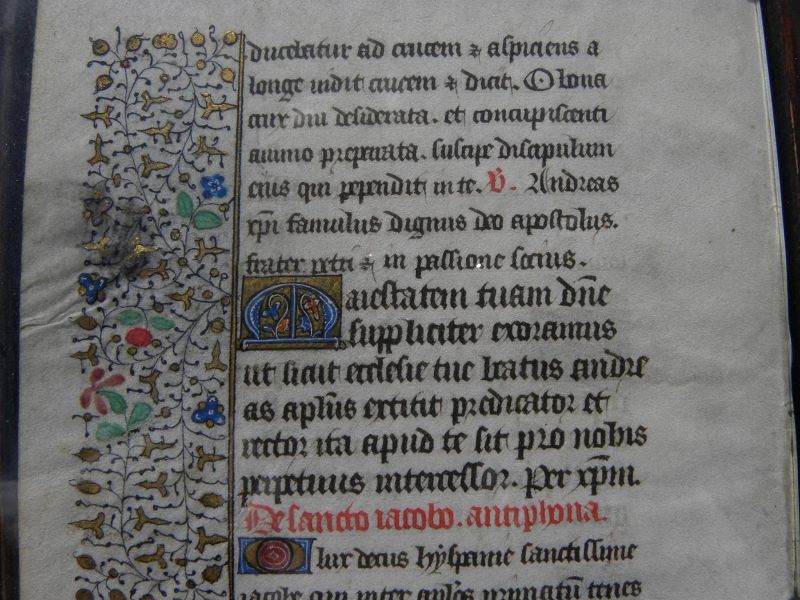 ducebatur ad crucem ⁊ aspiciens a
longe vidit crucem ⁊ dicit. O bona
crux diu desiderata. et concupiscenti
animo preparata. suscipe discipulum
eius qui pependit in te. V. Andreas
xp̄i famulus dignus deo apostolus.
frater petri ⁊ in passione socius.
Maiestatem tuam dn̄e
suppliciter exoramus
ut sicut ecclesie tue beatus andre
as apl̄us extitit predicator et
rector ita apud te sit pro nobis
perpetuus intercessor. Per xp̄m.
De sancto iacobo. antiphona.
O lux decus hyspanie sanctissime
iacobe qui inter apl̄os principatū tenes